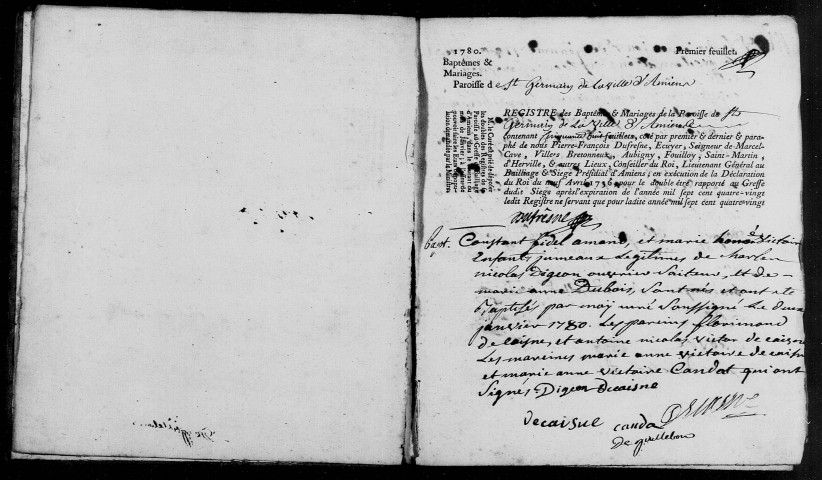 1780.
Premier feuillet.
Baptêmes &
Mariages.
Paroisse de St Germain de La ville d'Amiens
REGISTRE des Baptêmes & Mariages de la Paroisse de St
Germain de La Ville d'Amiens
contenant cinquante huit feuillets, coté par premier & dernier & para-
phé de nous Pierre-François Dufresne, Ecuyer, Seigneur de Marcel-
Cave, Villers Bretonneux, Aubigny, Fouilloy, Saint-Martin,
d'Herville, & autres Lieux, Conseiller du Roi, Lieutenant Général au
Bailliage & Siege Présidial d'Amiens; en exécution de la Déclaration
du Roi du neuf Avril 1736 pour le double être rapporté au Greffe
dudit Siege après l'expiration de l'année mil sept cent quatre-vingt
ledit Registre ne servant que pour ladite année mil sept cent quatre-vingt
Dufresne
Bapt. Constant fidel amand, et marie honoré victoire
Enfants jumeaux Legitimes de charles
nicolas Digeon ouvrier Saiteur, et de
marie anne Dubois, sont nés et ont été
Baptisé par moy curé soussigné Le deux
janvier 1780. Les pareins florimond
decaisne, et antoine nicolas victor decaisne
Les mareines marie anne victoire decaisne
et marie anne victoire Candat qui ont
Signés. Digeon Decaisne
decaisne canda
De quillebon